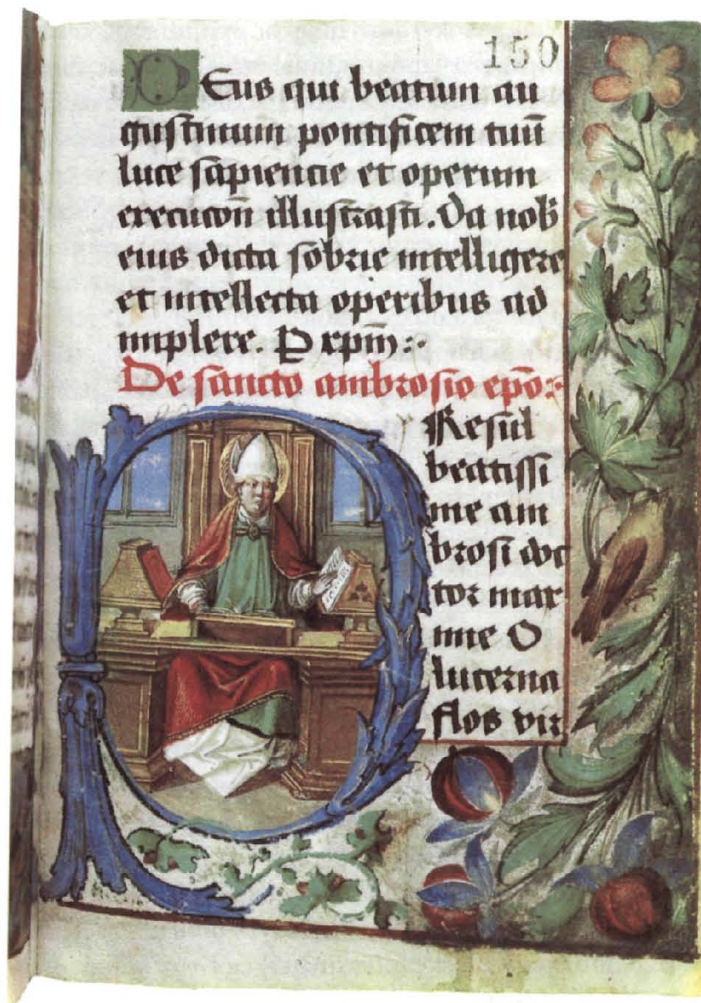 150
Deus qui beatum au
gustinum pontificem tuū
luce sapiencie et operum
execucōn illustrasti. Da nob
eius dicta sobrie intelligere
et intellecta operibus ad
implere. P xpm̄:
De sancto ambrosio ep̄o:
PResul
beatissi
me am
brosi doc
tor max
ime O
lucerna
flos vir